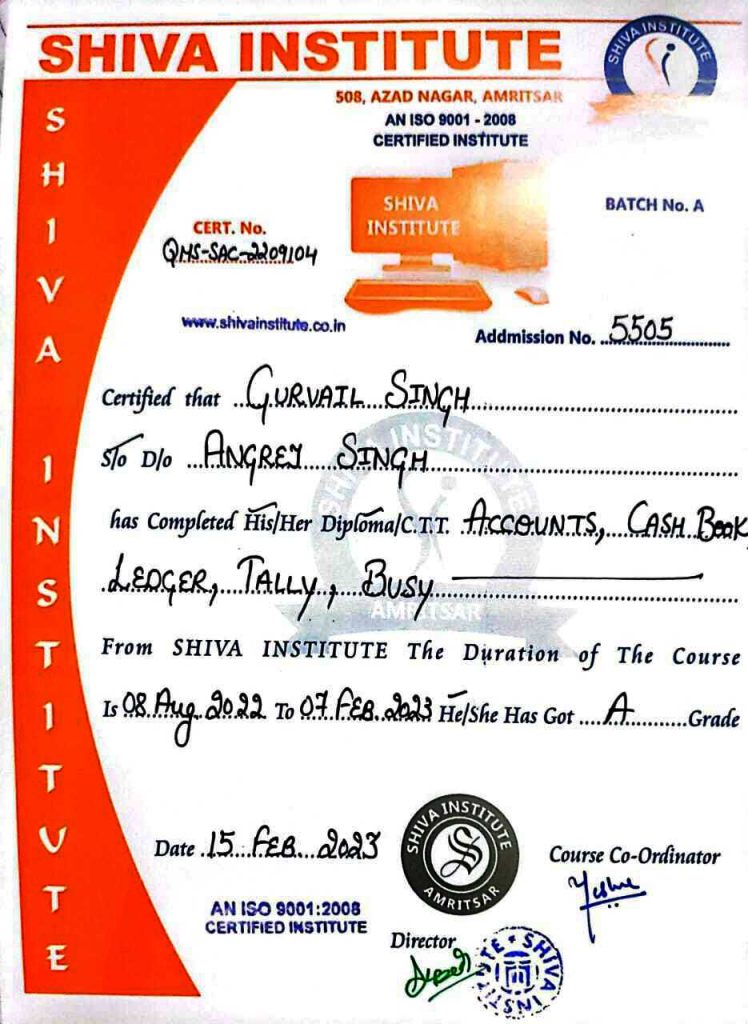 SHIVA INSTITUTE
SHIVA INSTITUTE
508, AZAD NAGAR, AMRITSAR
AN ISO 9001 - 2008
CERTIFIED INSTITUTE
SHIVA INSTITUTE
SHIVA
INSTITUTE
BATCH No. A
CERT. No.
QMS-SAC-2209104
www.shivainstitute.co.in
Addmission No. 5505
Certified that GURVAIL SINGH
S/o D/o ANGREJ SINGH
has Completed His/Her Diploma/C.T.T. ACCOUNTS, CASH BOOK
LEDGER, TALLY, BUSY
SHIVA INSTITUTE
AMRITSAR
From SHIVA INSTITUTE The Duration of The Course
Is 08 Aug. 2022 To 07 FEB. 2023 He/She Has Got A Grade
Date 15 FEB. 2023
SHIVA INSTITUTE
AMRITSAR
Course Co-Ordinator
AN ISO 9001:2008
CERTIFIED INSTITUTE
Director
SHIVA INSTITUTE